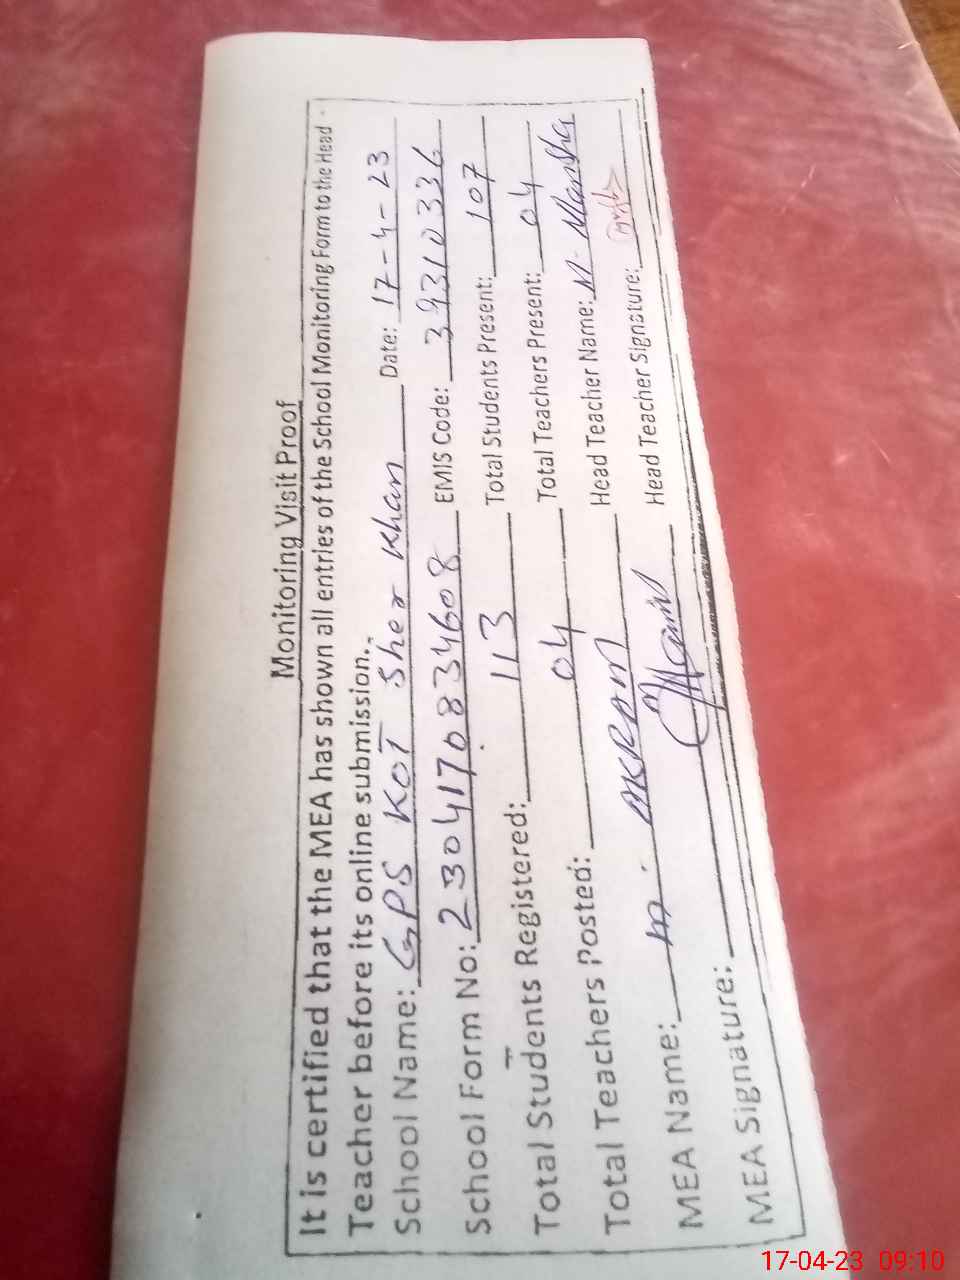 Monitoring Visit Proof
It is certified that the MEA has shown all entries of the School Monitoring Form to the Head
Teacher before its online submission.
School Name: GPS KOT Sher Khan Date: 17-4-23
School Form No: 2304170834608 EMIS Code: 39310336
Total Students Registered: 113 Total Students Present: 107
Total Teachers Posted: 04 Total Teachers Present: 04
MEA Name: M. AKRAM Head Teacher Name: M. Mansha
MEA Signature: Head Teacher Signature:
17-04-23 09:10